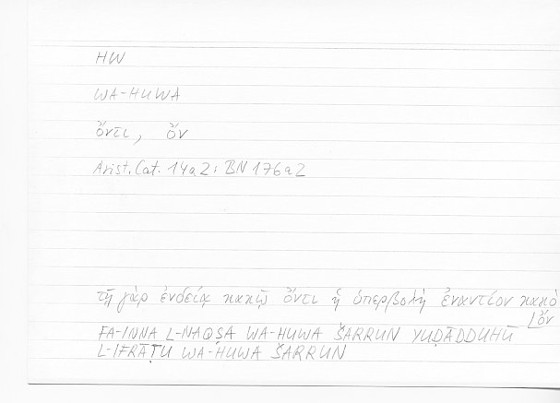 HW
WA-HUWA
ὄντι, ὄν
Arist. Cat. 14a2; BN 176a2
τῇ γὰρ ἐνδείᾳ κακῷ ὄντι ἡ ὑπερβολὴ ἐναντίον κακὸ
[ὄν
FA-INNA L-NAQṢA WA-HUWA ŠARRUN YUḌĀDDUHŪ
L-IFRĀṬU WA-HUWA ŠARRUN